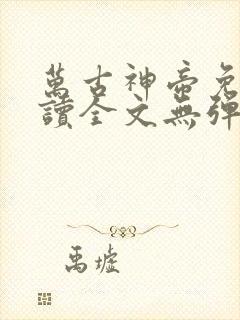 萬古神帝免
讀全文無彈
禹墟